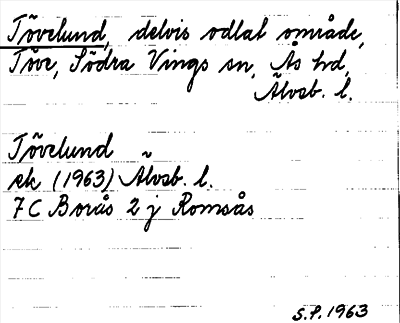 Tövelund, delvis odlat område,
Töve, Södra Vings sn, Ås hd,
Älvsb. l.
Tövelund
ek (1963) Älvsb. l.
7C Borås 2 j Romsås
S.P. 1963